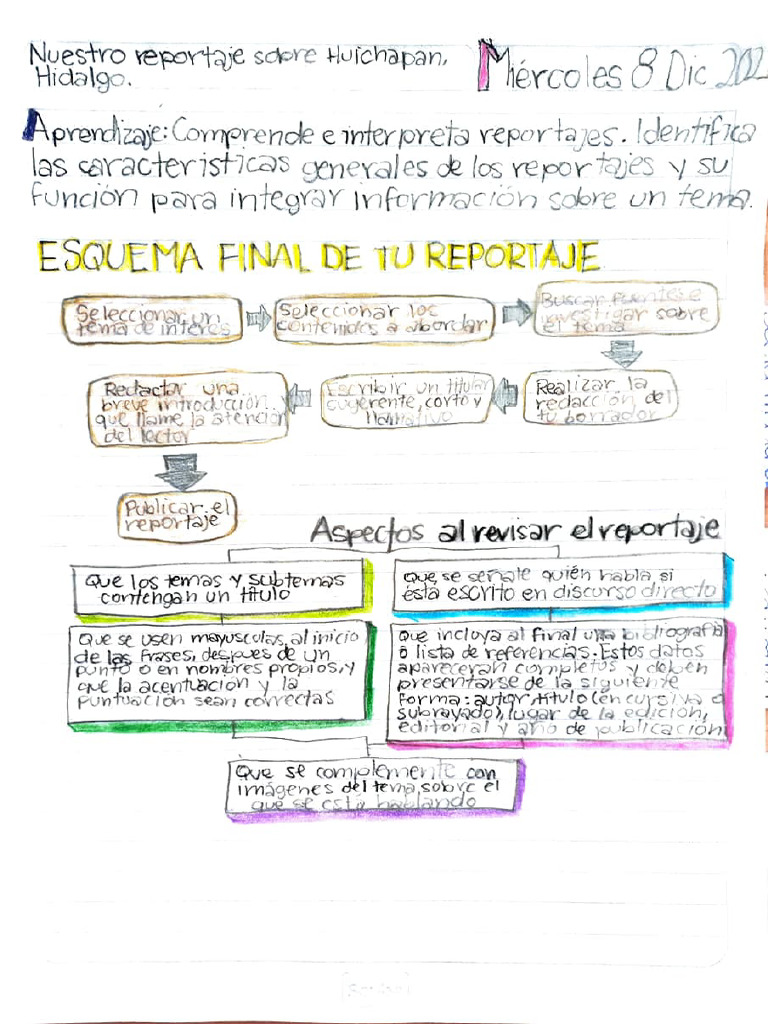 Nuestro reportaje sobre Huichapan,
Hidalgo.
Miércoles 8 Dic 202
Aprendizaje: Comprende e interpreta reportajes. Identifica
las características generales de los reportajes y su
función para integrar información sobre un tema.
ESQUEMA FINAL DE TU REPORTAJE
Seleccionar un
tema de interés
Seleccionar los
contenidos a abordar
Buscar fuentes e
investigar sobre
el tema
Realizar la
redacción del
tu borrador
Escribir un titular
sugerente, corto y
llamativo
Redactar una
breve introducción
que llame la atención
del lector
Publicar el
reportaje
Aspectos al revisar el reportaje
Que los temas y subtemas
contengan un título
Que se señale quién habla, si
ésta escrito en discurso directo
Que se usen mayusculas, al inicio
de las frases, despues de un
punto o en nombres propios, y
que la acentuación y la
puntuación sean correctas
Que incluya al final una bibliografía
o lista de referencias. Estos datos
apareceran completos y deben
presentarse de la siguiente
forma: autor, título (en cursiva o
subrayado), lugar de la edición,
editorial y año de publicación
Que se complemente con
imágenes del tema, sobre el
que se está hablando